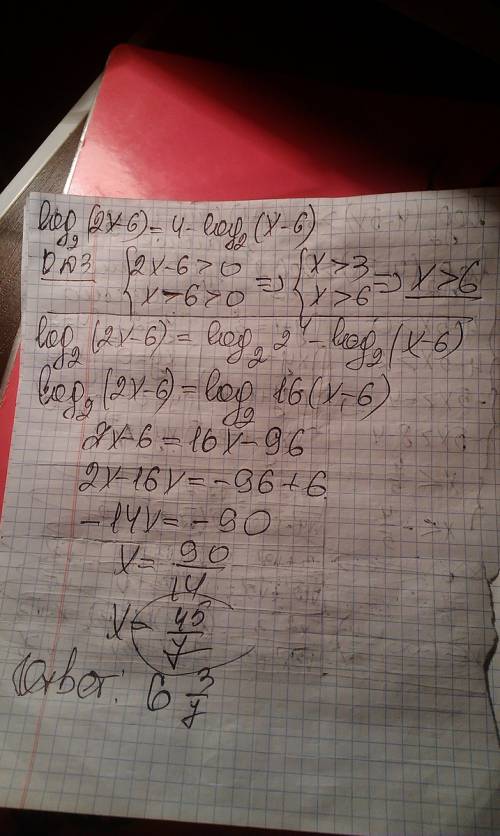 log₂(2x-6)=4-log₂(x-6)
ОДЗ {2x-6>0 x-6>0 => {x>3 x>6 => x>6
log₂(2x-6)=log₂2⁴-log₂(x-6)
log₂(2x-6)=log₂ 16(x-6)
2x-6=16x-96
2x-16x=-96+6
-14x=-90
x=90/14
x=45/7
Ответ: 6 3/7